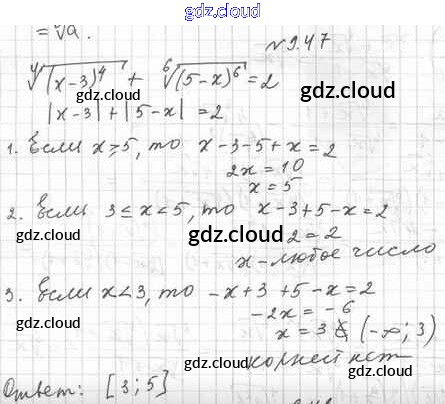 gdz.cloud
= ⁿ√a.
№9.47
⁴√(x-3)⁴ + ⁶√(5-x)⁶ = 2
gdz.cloud gdz.cloud
|x-3| + |5-x| = 2
1. Если x ≥ 5, то x-3-5+x = 2
2x = 10
x = 5
2. Если 3 ≤ x < 5, то x-3+5-x = 2
gdz.cloud gdz.cloud 2 = 2
x - любое число
3. Если x < 3, то -x+3+5-x = 2
-2x = -6
gdz.cloud x = 3 ∉ (-∞; 3)
gdz.cloud корней нет
Ответ: [3; 5] gdz.cloud